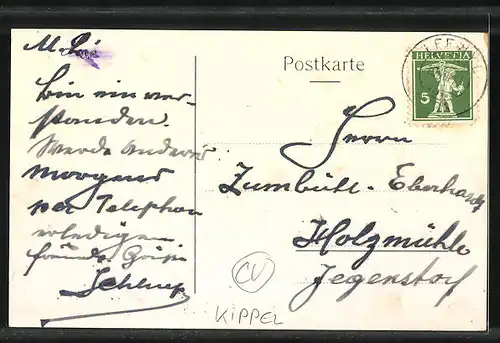 Bin ein ver-
standen.
Werde Anderes
Morgens
per Telephon
erledigen
Schlup
Postkarte
HELVETIA
5
Herrn
Zumbühl-Eberhard
Holzmühle
Jegenstorf
CV
KIPPEL